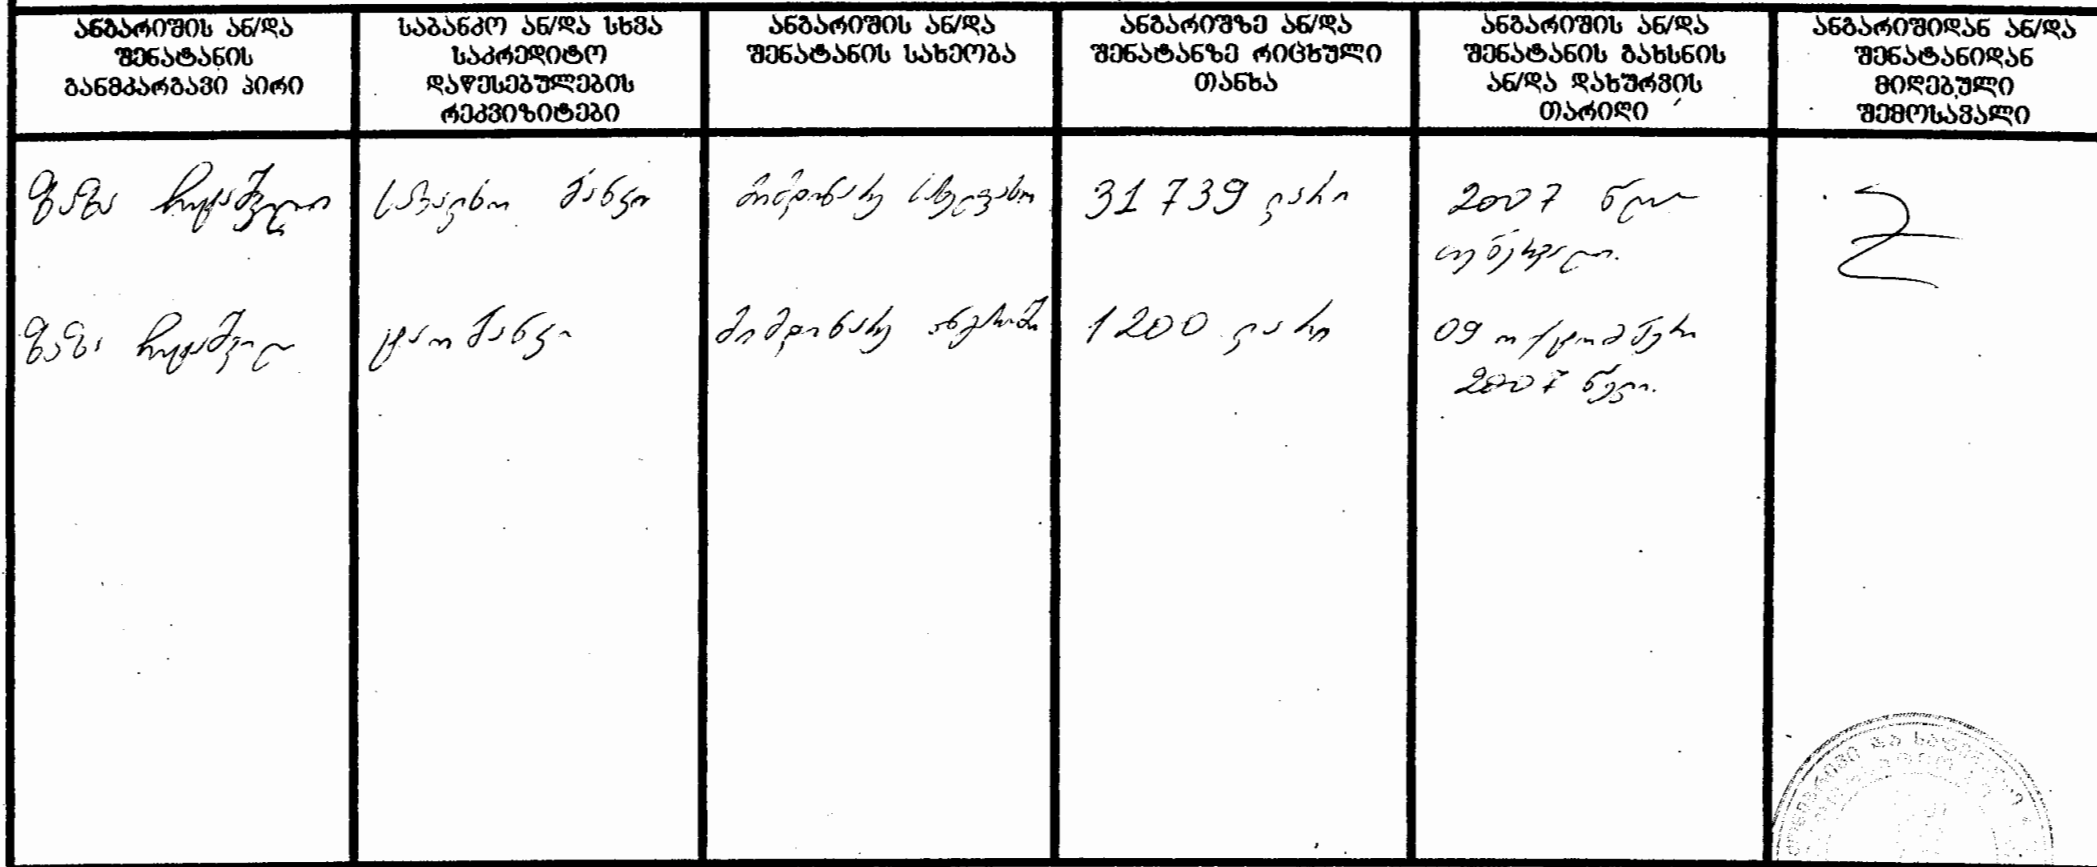 ანგარიშის ან/და
შენატანის
განმკარგავი პირი
საბანკო ან/და სხვა
საკრედიტო
დაწესებულების
რეკვიზიტები
ანგარიშის ან/და
შენატანის სახეობა
ანგარიშზე ან/და
შენატანზე რიცხული
თანხა
ანგარიშის ან/და
შენატანის გახსნის
ან/და დახურვის
თარიღი
ანგარიშიდან ან/და
შენატანიდან
მიღებული
შემოსავალი
ზაზა
სახალხო ბანკი
მიმდინარე სახელფასო
31 739 ლარი
2007 წლი
თებერვალი.
ზაზა
ტაობანკი
მიმდინარე ანგარიში
1200 ლარი
09 ოქტომბერი
2007 წელი.